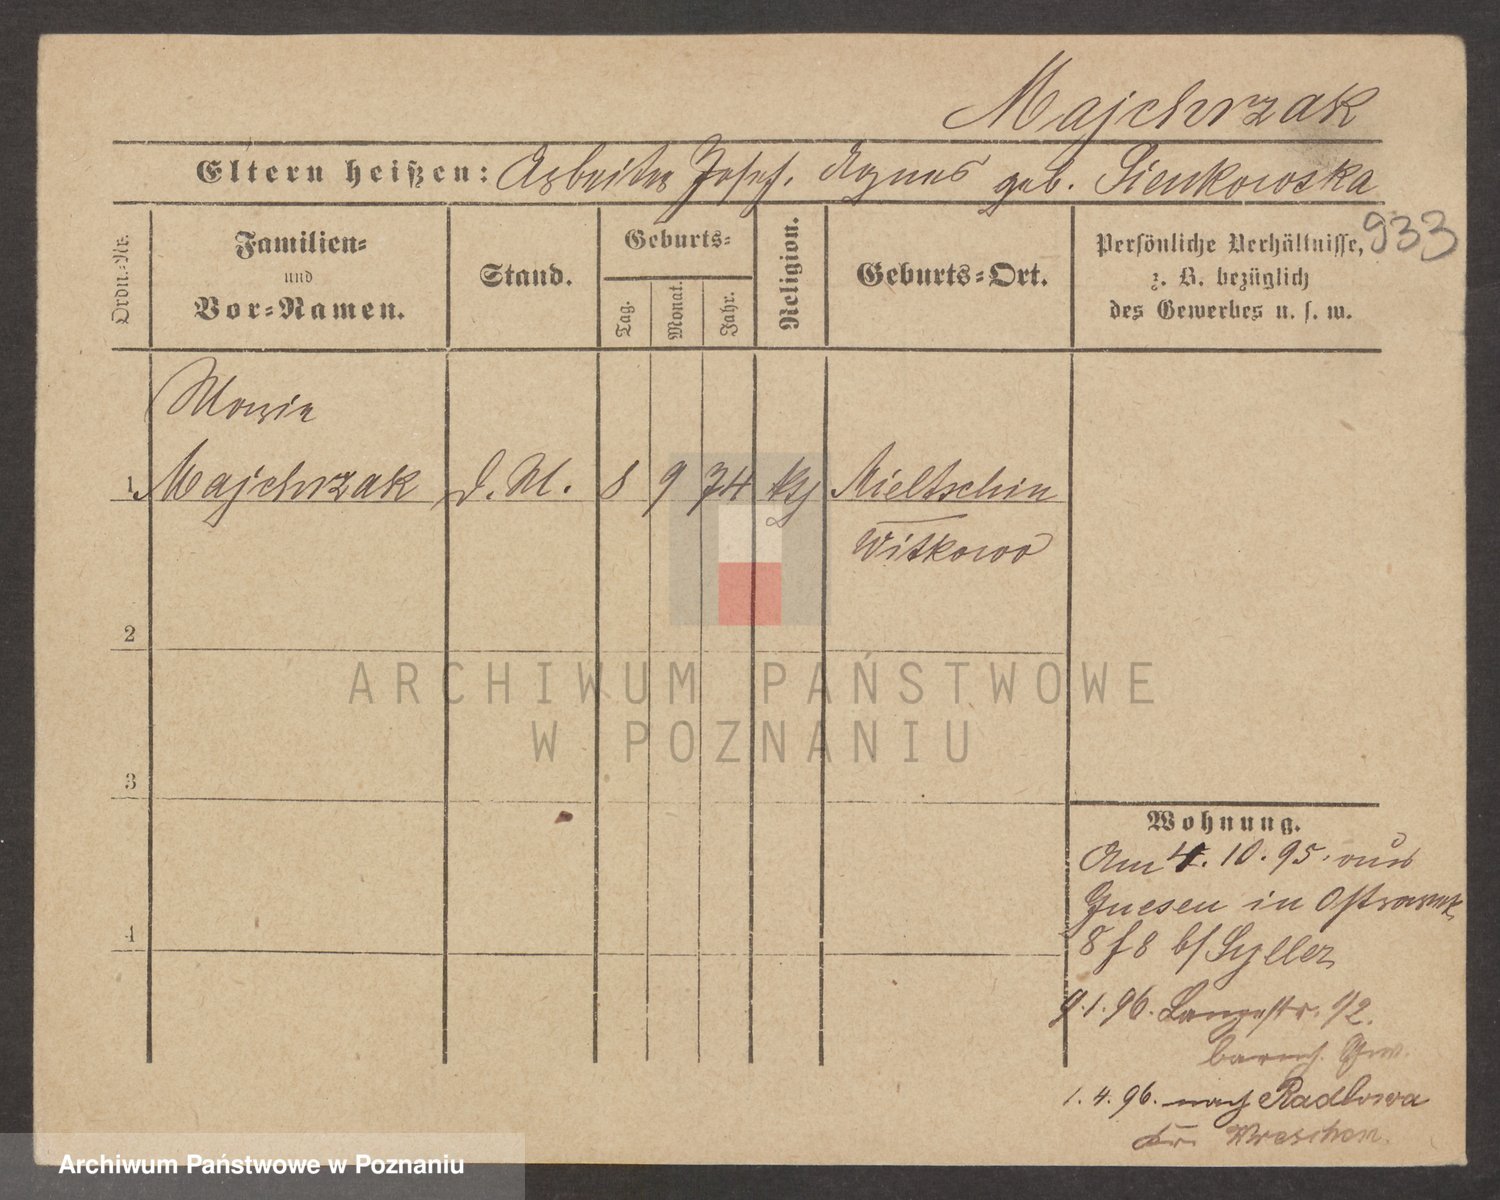 Majchrzak
Eltern heißen: Arbeiter Josef, Agnes geb. Sienkowska
933
Ordn.-Nr.
Familien-
und
Vor-Namen.
Stand.
Geburts-
Tag.
Monat.
Jahr.
Religion.
Geburts-Ort.
Persönliche Verhältnisse,
z. B. bezüglich
des Gewerbes u. s. w.
Maria
1 Majchrzak D. M. 8 9 74 Mieltschin
Witkowo
2
3
4
ARCHIWUM PAŃSTWOWE
W POZNANIU
Wohnung.
Am 4. 10. 95. aus
Gnesen in
8 b/
9. 1. 96. Langestr. 1/2.
1. 4. 96. nach Radlowa
Kr. Wreschen.
Archiwum Państwowe w Poznaniu